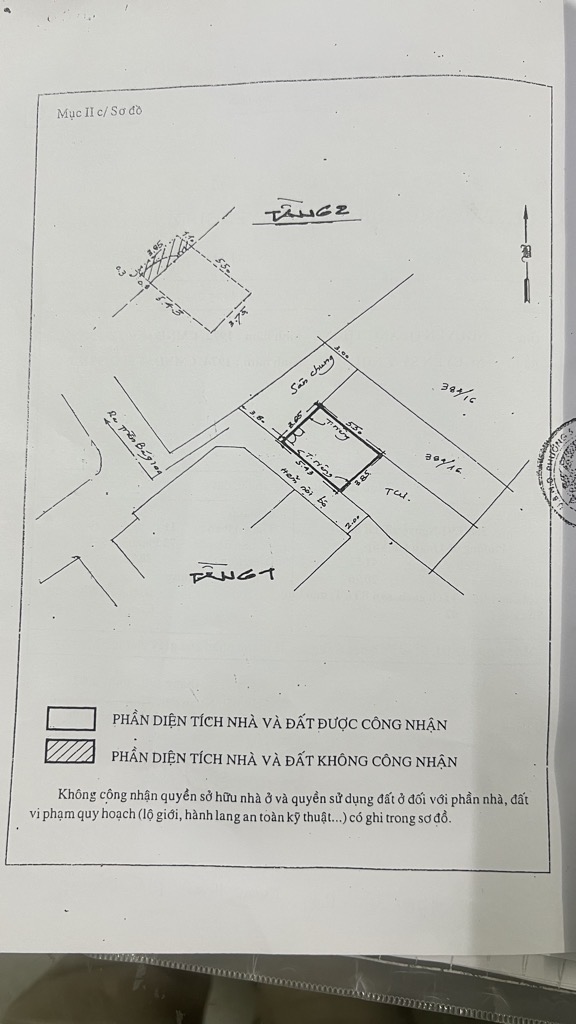 Mục II c/ Sơ đồ
TẦNG 2
3.85
1.10
0.3
0.8
5.50
5.43
3.75
3.00
Sân chung
384/16
3.80
3.85
5.50
T.riêng
384/16
T.riêng
5.43
3.85
Hẻm nội bộ
2.00
TẦNG 1
PHẦN DIỆN TÍCH NHÀ VÀ ĐẤT ĐƯỢC CÔNG NHẬN
PHẦN DIỆN TÍCH NHÀ VÀ ĐẤT KHÔNG CÔNG NHẬN
Không công nhận quyền sở hữu nhà ở và quyền sử dụng đất ở đối với phần nhà, đất
vi phạm quy hoạch (lộ giới, hành lang an toàn kỹ thuật...) có ghi trong sơ đồ.